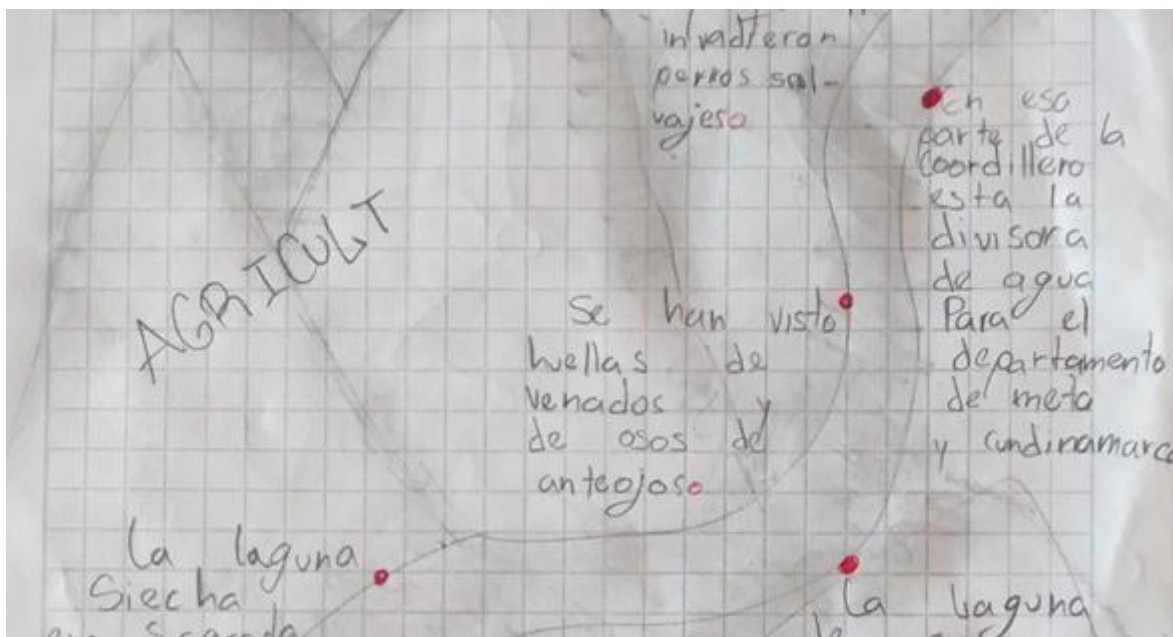 invadieron
perros sal-
vajes
En esa
parte de la
Coordillero
esta la
divisora
de agua
Para el
departamento
de meta
y cundinamarca
AGRICULT
Se han visto
huellas de
venados y
de osos de
anteojos
la laguna
Siecha
La laguna